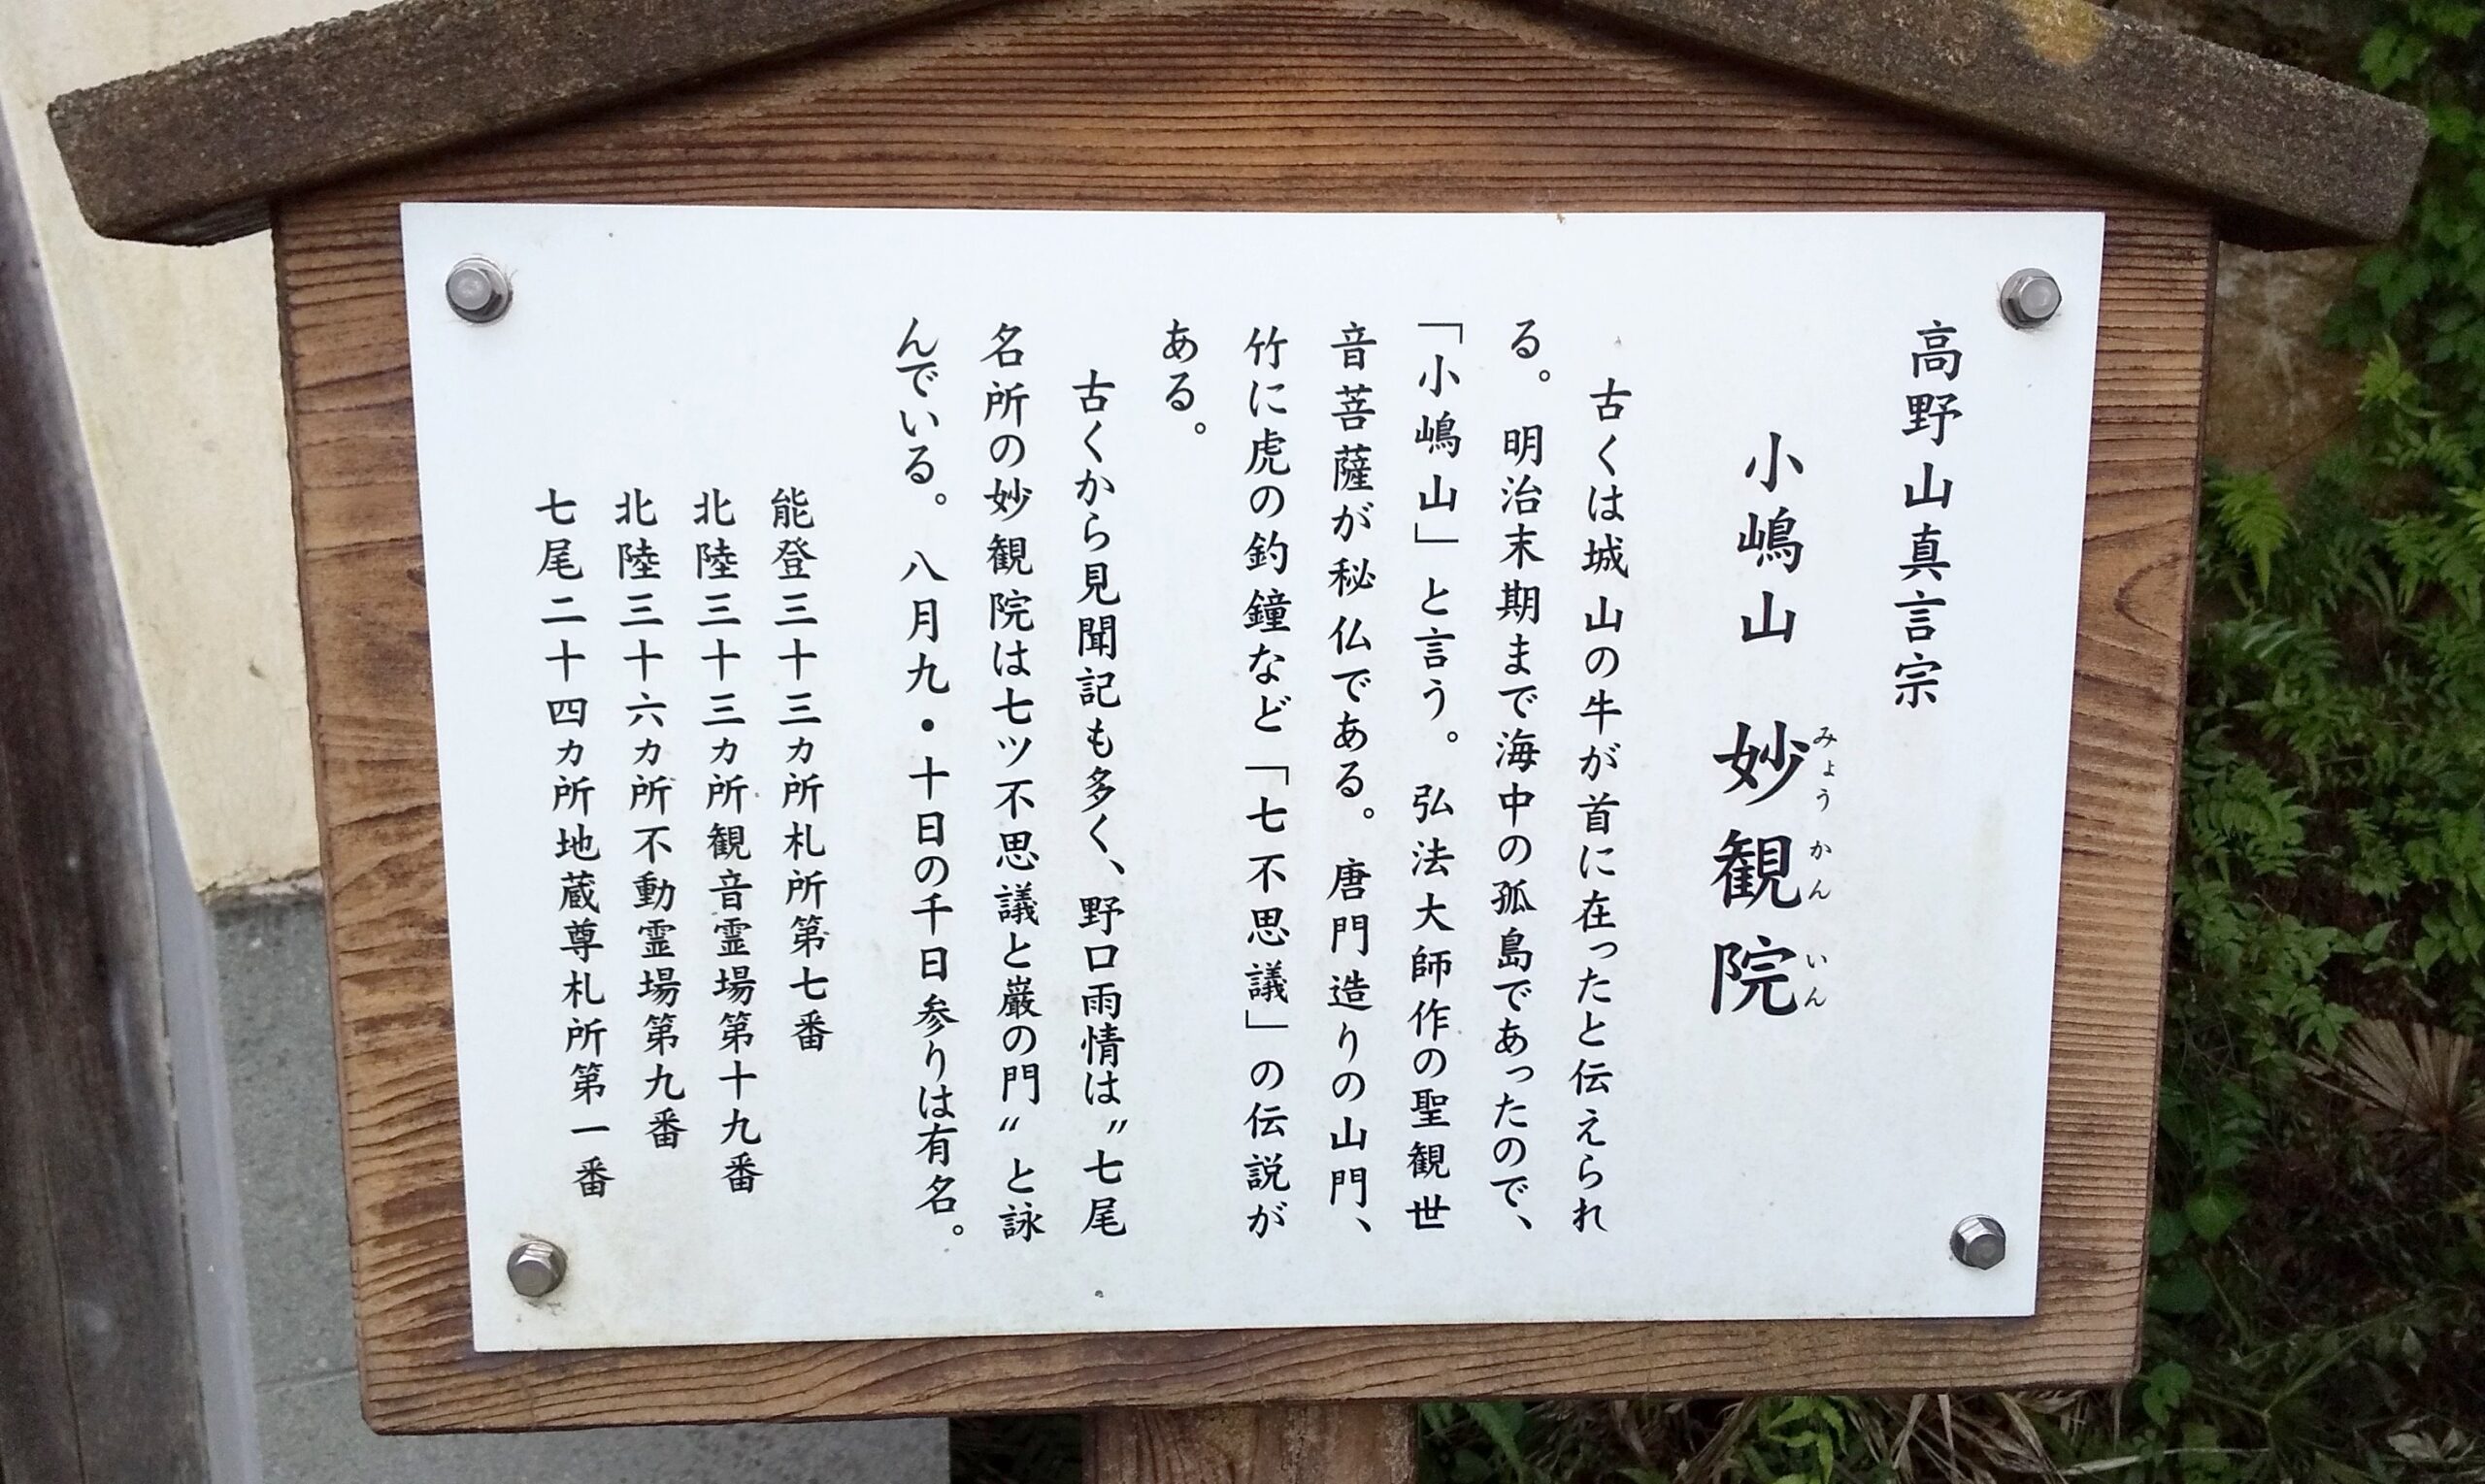 高野山真言宗
小嶋山　妙観院
みょうかんいん
古くは城山の牛が首に在ったと伝えられ
る。明治末期まで海中の孤島であったので、
「小嶋山」と言う。弘法大師作の聖観世
音菩薩が秘仏である。唐門造りの山門、
竹に虎の釣鐘など「七不思議」の伝説が
ある。
古くから見聞記も多く、野口雨情は〝七尾
名所の妙観院は七ツ不思議と巌の門〟と詠
んでいる。八月九・十日の千日参りは有名。
能登三十三カ所札所第七番
北陸三十三カ所観音霊場第十九番
北陸三十六カ所不動霊場第九番
七尾二十四カ所地蔵尊札所第一番